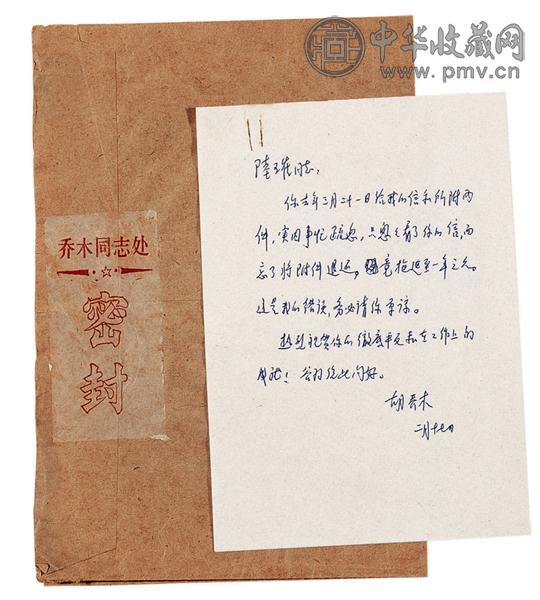 中华收藏网
www.pmv.cn
乔木同志处
密封
陆璀同志:
你去年三月二十一日给我的信和所附两
件,实因事忙疏忽,只忽忽看了你的信,而
忘了将附件退还,竟拖延至一年之久。
这是我的错误,务必请你原谅。
热烈祝贺你的彻底平反和在工作上的
成就!谷羽统此问好。
胡乔木
二月十七日